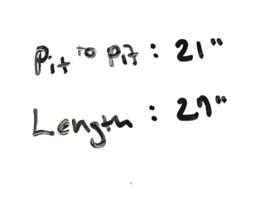 Pit to Pit: 21"
Length: 27"